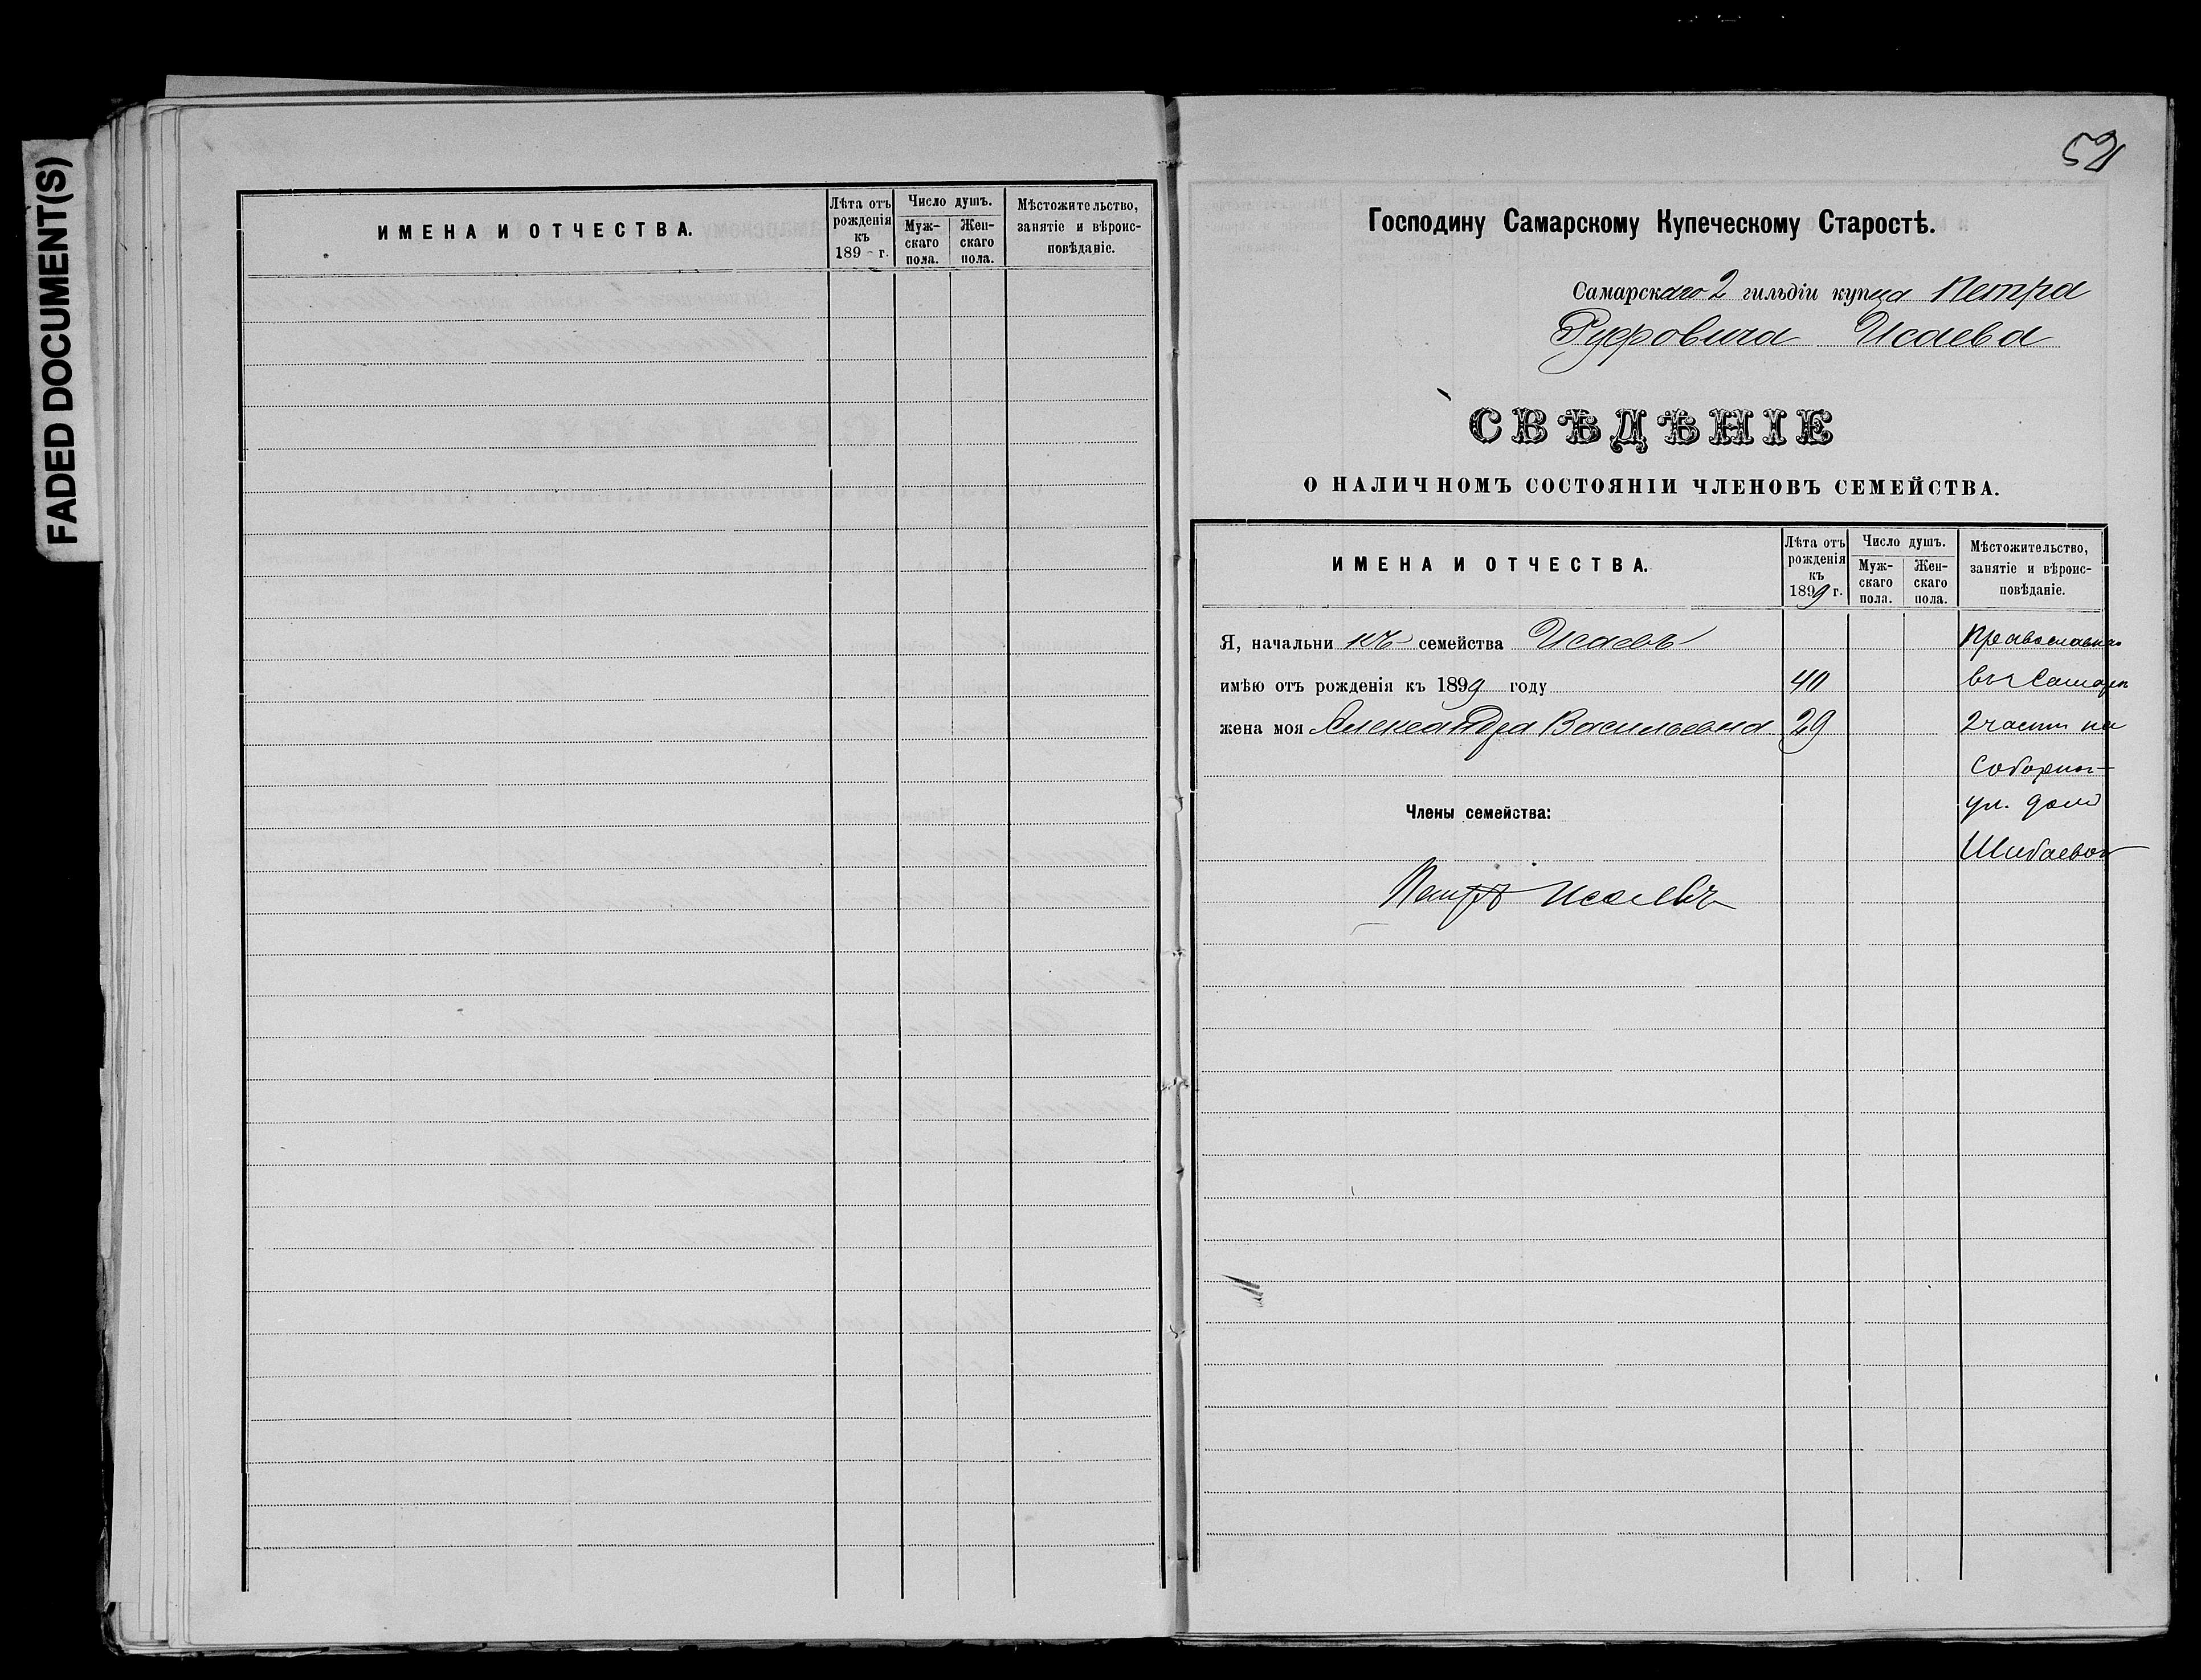 FADED DOCUMENT(S)
ИМЕНА И ОТЧЕСТВА.
Лѣта отъ рожденія къ 189 - г.
Число душъ.
Муж-скаго пола.
Жен-скаго пола.
Мѣстожительство, занятіе и вѣроис-повѣданіе.
52
Господину Самарскому Купеческому Старостѣ.
Самарскаго 2 гильдіи купца Петра
Руфовича Исаева
СВѢДѢНІЕ
О НАЛИЧНОМЪ СОСТОЯНІИ ЧЛЕНОВЪ СЕМЕЙСТВА.
ИМЕНА И ОТЧЕСТВА.
Лѣта отъ рожденія къ 1899 г.
Число душъ.
Муж-скаго пола.
Жен-скаго пола.
Мѣстожительство, занятіе и вѣроис-повѣданіе.
Я, начальникъ семейства Исаевъ
имѣю отъ рожденія къ 1899 году 40 въ Самарѣ
жена моя Александра Васильевна 29 2 части на
Соборной
ул. домъ
Члены семейства:
Шибаевой
Петръ Исаевъ